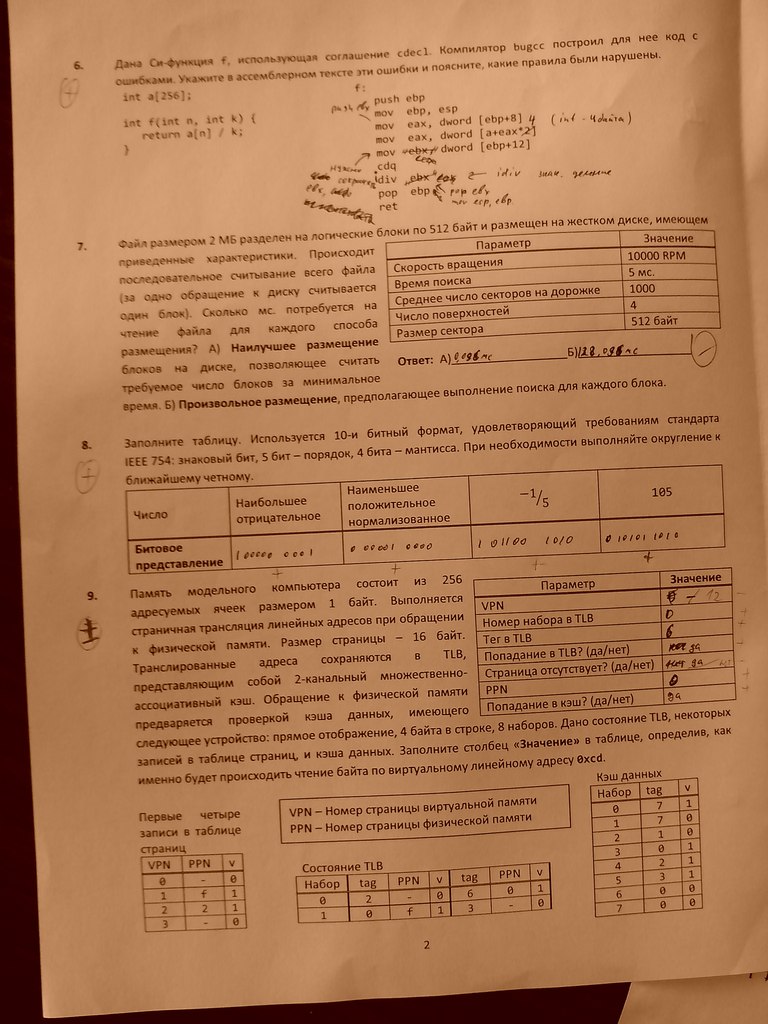 6. Дана Си-функция f, использующая соглашение cdecl. Компилятор bugcc построил для нее код с
ошибками. Укажите в ассемблерном тексте эти ошибки и поясните, какие правила были нарушены.
int a[256];
int f(int n, int k) {
return a[n] / k;
}
f:
push ebp
push ebx
mov ebp, esp
mov eax, dword [ebp+8] 4 (int - 4 байта)
mov eax, dword [a+eax*2]
mov ebx, dword [ebp+12]
ecx
cdq
idiv ebx ecx ← idiv знак. деление
pop ebp pop ebx
mov esp, ebp
ret
нужно
сохранить
7. Файл размером 2 МБ разделен на логические блоки по 512 байт и размещен на жестком диске, имеющем
приведенные характеристики. Происходит
последовательное считывание всего файла
(за одно обращение к диску считывается
один блок). Сколько мс. потребуется на
чтение файла для каждого способа
размещения? А) Наилучшее размещение
блоков на диске, позволяющее считать
требуемое число блоков за минимальное
время. Б) Произвольное размещение, предполагающее выполнение поиска для каждого блока.
Параметр Значение
Скорость вращения 10000 RPM
Время поиска 5 мс.
Среднее число секторов на дорожке 1000
Число поверхностей 4
Размер сектора 512 байт
Ответ: А) Б)
8. Заполните таблицу. Используется 10-и битный формат, удовлетворяющий требованиям стандарта
IEEE 754: знаковый бит, 5 бит – порядок, 4 бита – мантисса. При необходимости выполняйте округление к
ближайшему четному.
Число Наибольшее отрицательное Наименьшее положительное нормализованное −1/5 105
Битовое представление 1 00000 0001 0 00001 0000 1 01100 1010 0 10101 1010
+ + +- +
9. Память модельного компьютера состоит из 256
адресуемых ячеек размером 1 байт. Выполняется
страничная трансляция линейных адресов при обращении
к физической памяти. Размер страницы – 16 байт.
Транслированные адреса сохраняются в TLB,
представляющим собой 2-канальный множественно-
ассоциативный кэш. Обращение к физической памяти
предваряется проверкой кэша данных, имеющего
следующее устройство: прямое отображение, 4 байта в строке, 8 наборов. Дано состояние TLB, некоторых
записей в таблице страниц, и кэша данных. Заполните столбец «Значение» в таблице, определив, как
именно будет происходить чтение байта по виртуальному линейному адресу 0xcd.
Параметр Значение
VPN 12
Номер набора в TLB 0
Тег в TLB 6
Попадание в TLB? (да/нет) да
Страница отсутствует? (да/нет) да
PPN 0
Попадание в кэш? (да/нет) да
Первые четыре
записи в таблице
страниц
VPN PPN v
0 - 0
1 f 1
2 2 1
3 - 0
VPN – Номер страницы виртуальной памяти
PPN – Номер страницы физической памяти
Состояние TLB
Набор tag PPN v tag PPN v
0 2 - 0 6 0 1
1 0 f 1 3 - 0
Кэш данных
Набор tag v
0 7 1
1 7 0
2 1 0
3 0 1
4 2 1
5 3 1
6 0 0
7 0 0
2